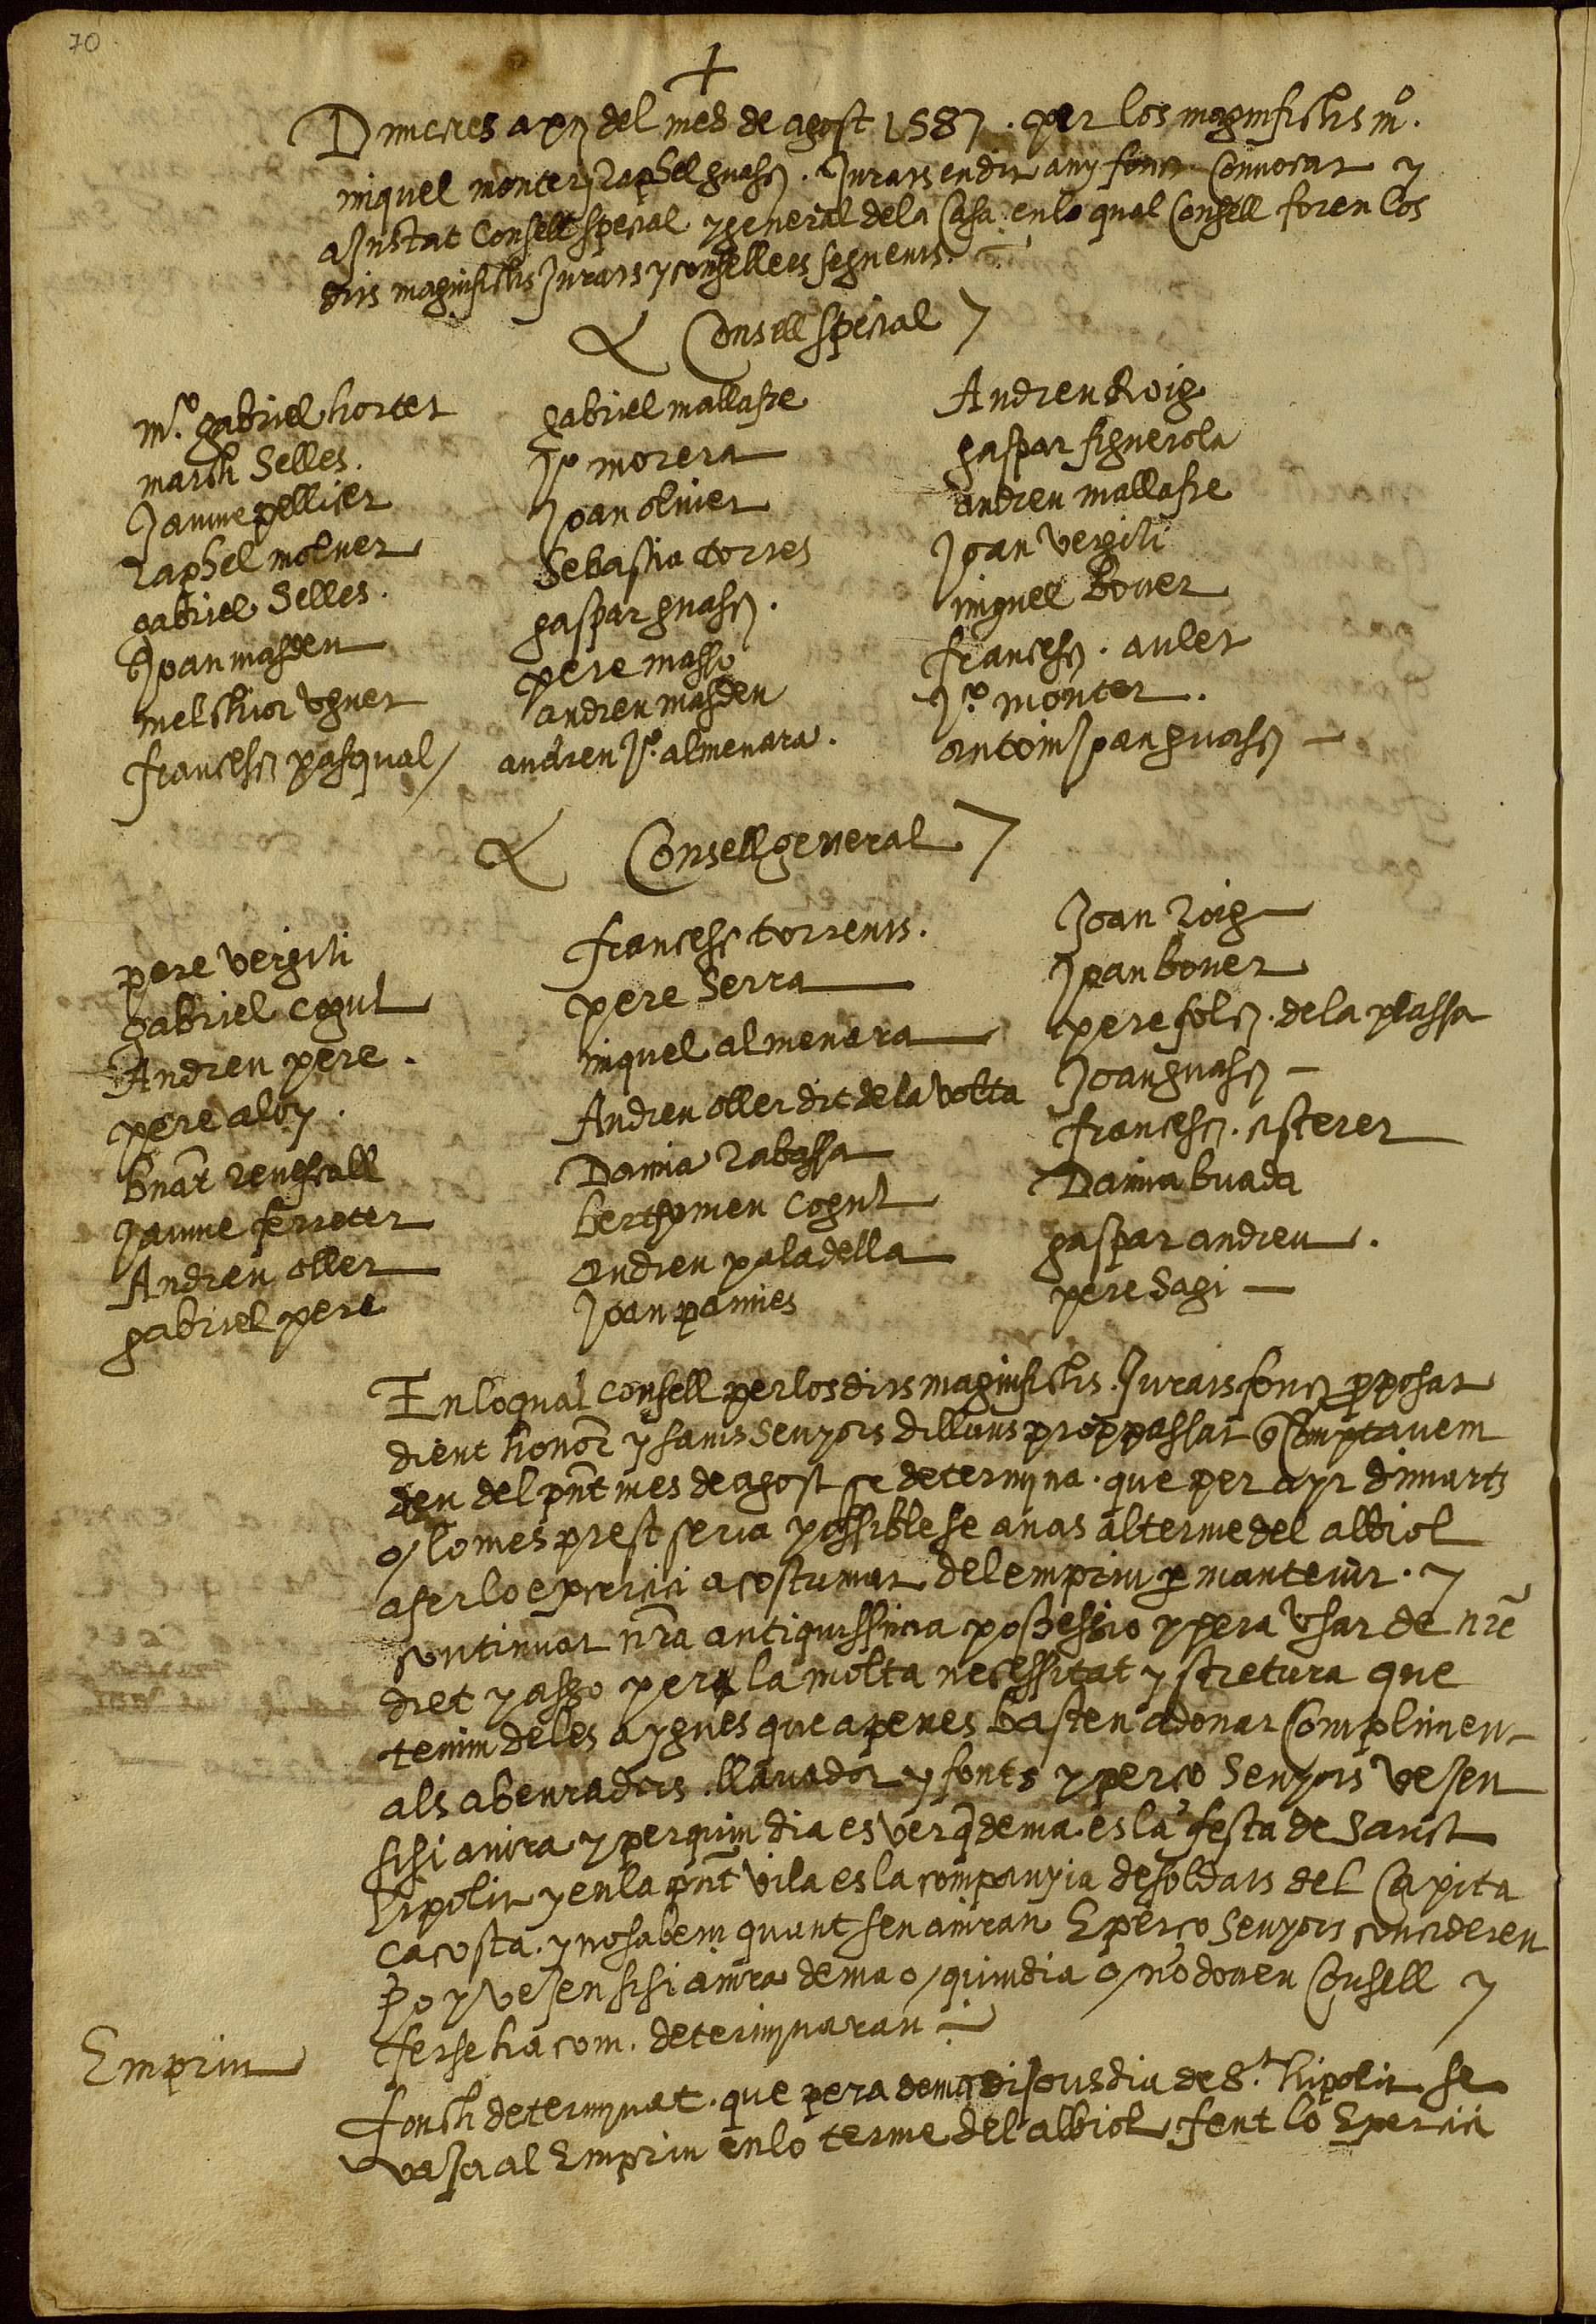 70
+
Dimecres a xij del mes de agost 1587. per los magnifichs mº.
miquel monter y Raphel guasch. Jurats en dit any fonch Convocat y
aJustat Consell spesial y general de la Casa. en lo qual Consell foren los
dits magnifichs Jurats y consellers seguents.
Consell spesial
mº. gabriel hortet
march Selles.
Jaume pellicer
raphel molner
gabriel Selles.
Joan masdeu
melchior uguet
francesch pasqual
gabriel mallafre
Jº morera
Joan oliver
Sebastia torres
gaspar guasch.
pere masso
andreu masdeu
andreu Jº. almenara.
Andreu Roig
gaspar figuerola
andreu mallafre
Joan vergili
miquel Bover
francesch. aulet
Jº. monter.
antoni Joan guasch
Consell general
pere vergili
gabriel cogul
Andreu pere.
pere aloy.
bnat renescall
Jaume ferrater
Andreu oller
gabriel pere
francesch torrents.
pere Serra
miquel almenara
Andreu oller dit de la volta
Damia rabassa
berthomeu cogul
andreu paladella
Joan pamies
Joan roig
Joan bover
pere folch. de la plassa
Joan guasch
francesch. cisterer
Damia buada
gaspar andreu.
pere Sagi
En lo qual consell per los dits magnifichs. Jurats fonch pposat
dient honor y savis Senyors dilluns prop passat q Comptavem
deu del pnt mes de agost se determina. que per ayr dimarts
o/ lo mes prest seria possible se anas al terme del albiol
a fer lo exercici acostumat del empriu p mantenir. y
continuar nra antiquissima possessio y pera usar de nre
dret y asso per la molta necessitat y stretura que
tenim de les aygues que apenes basten a donar Complimen
als abeuradors. llavador y fonts y perço Senyors veJen
si si anira y per quin dia es ver q dema es la festa de Sanct
hipolit y en la pnt vila es la companyia de soldats del Capita
cacosta. y no sabem quant sen aniran E perço Senyors concideren
ho y veJen si si anira dema o/ quin dia o/ no donen Consell y
ferse ha com. determynaran
Empriu
fonch determynat. que pera dema diJous dia de S.t hipolit se
vaJa al Empriu en lo terme del albiol fent lo Exercici